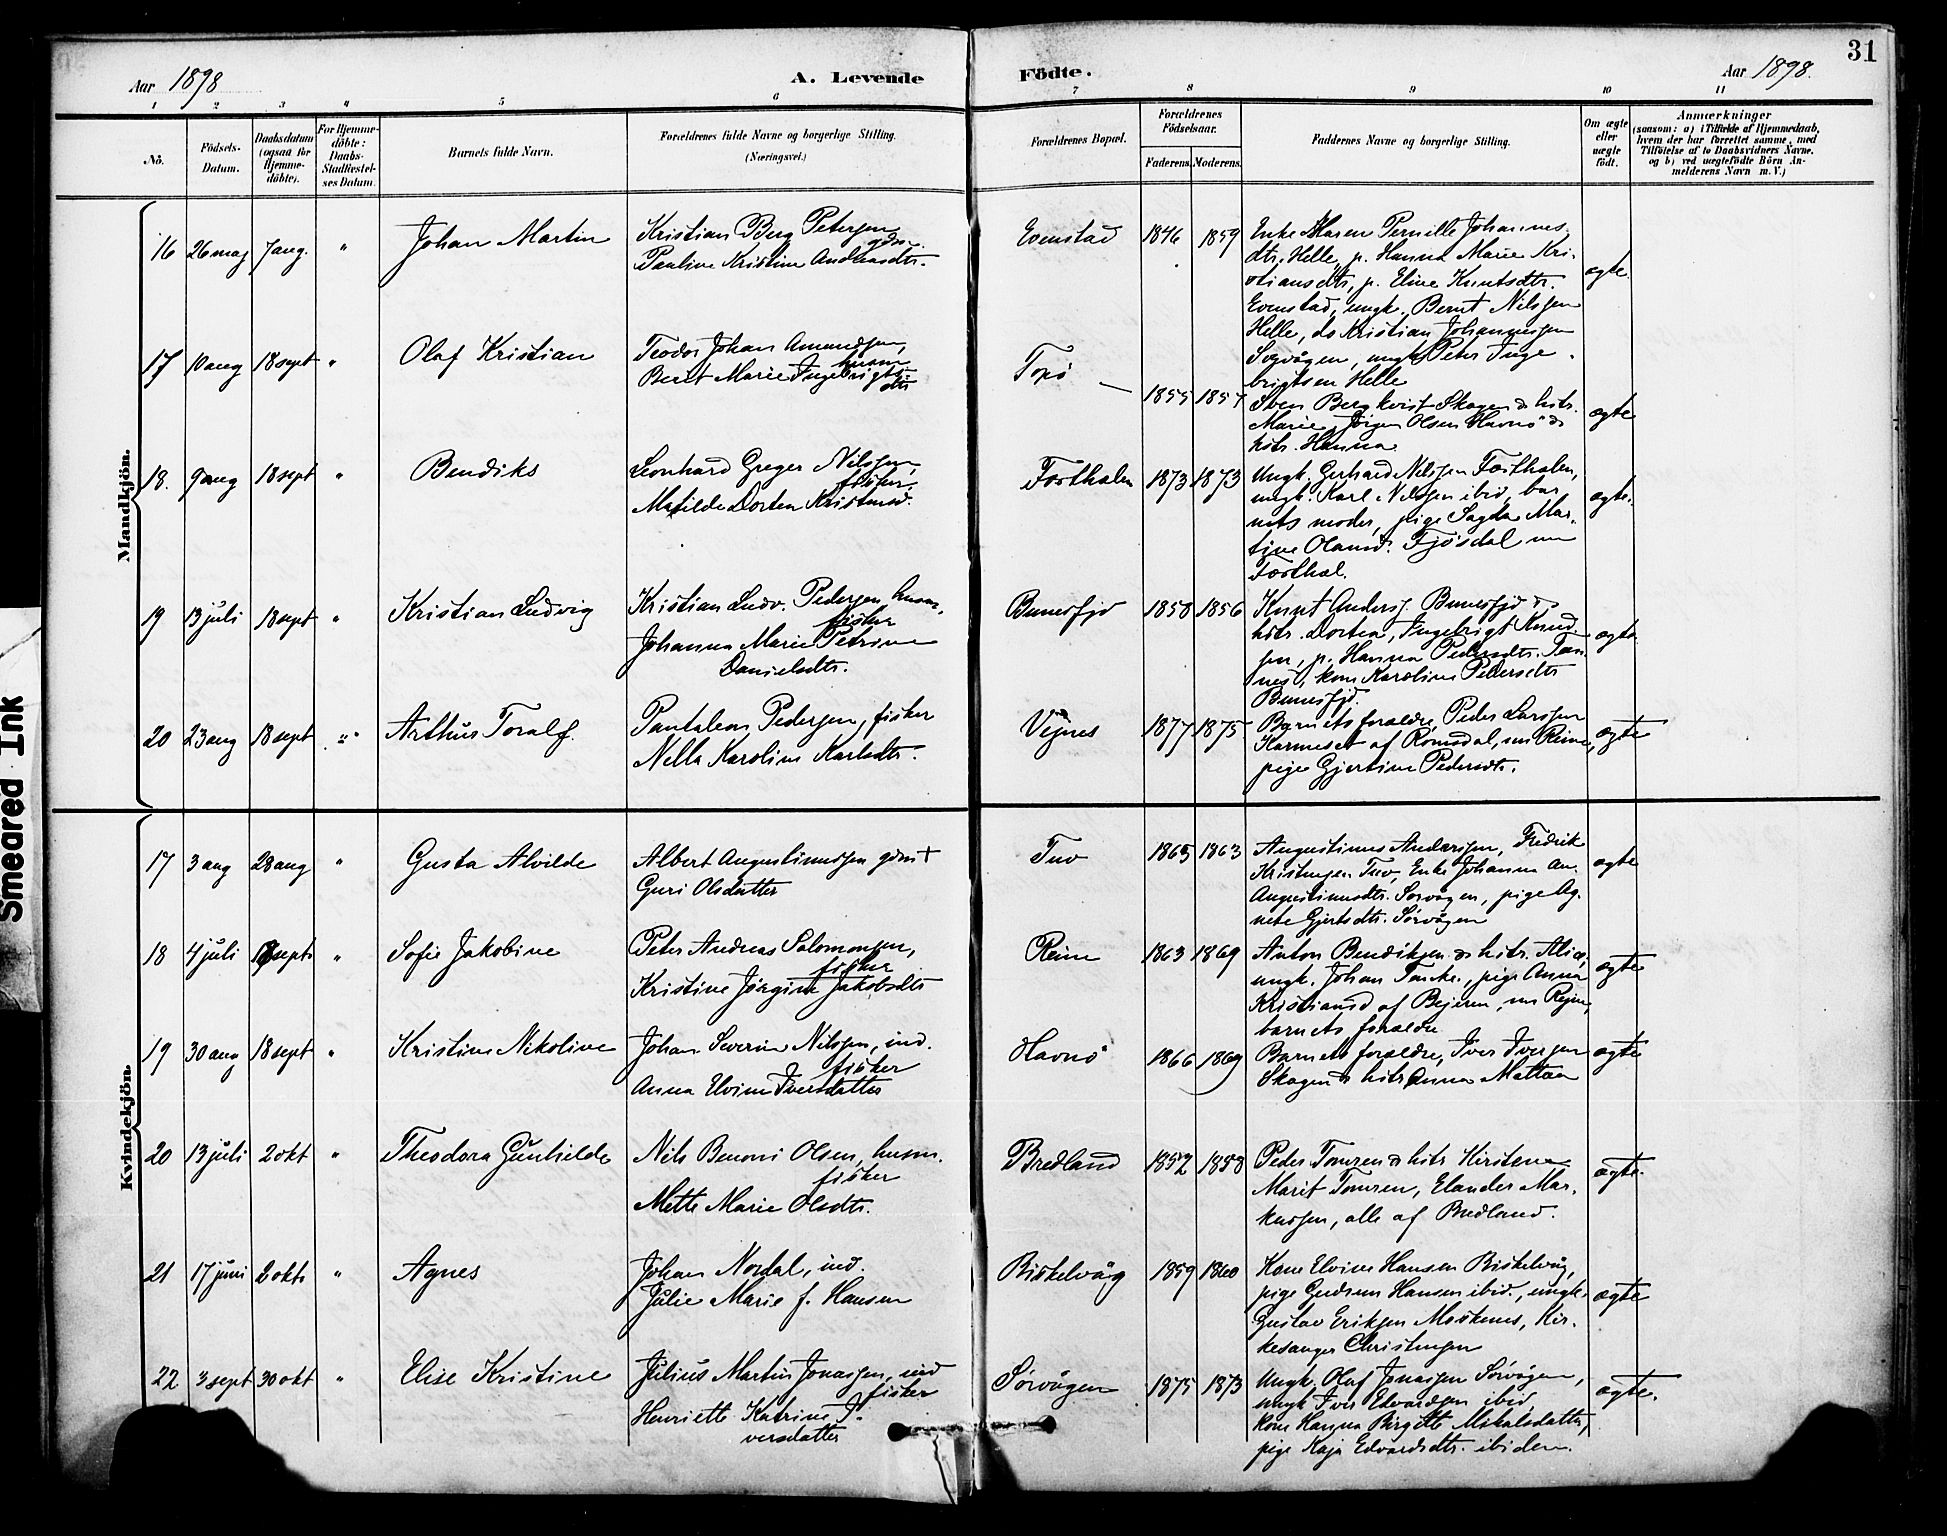 31
Aar 1898
A. Levende Födte.
Aar 1898.
1 2 3 4 5 6 7 8 9 10 11
No.
Födsels-Datum.
Daabsdatum (ogsaa for Hjemmedöbte).
For Hjemmedöbte: Daabs-Stadfæstelses Datum.
Barnets fulde Navn.
Forældrenes fulde Navne og borgerlige Stilling.
(Næringsvei.)
Forældrenes Bopæl.
Forældrenes Födselsaar.
Faderens. Moderens.
Faddernes Navne og borgerlige Stilling.
Om ægte eller uægte födt.
Anmærkninger
(saasom: a) i Tilfælde af Hjemmedaab,
hvem der har forrettet samme, med
Tilföielse af to Daabsvidners Navne,
og b) ved uægtefödte Börn Anmelderens Navn m. V.)
Mandkjön.
16 26 maj 7 aug. " Johan Martin
Kristian Berg Petersen gdm.
Pauline Kristine Andreasdtr.
Evenstad 1846 1859
Enke Maren Pernille Johannes
dtr. Helle, p. Hanna Marie Kri-
stiansdtr, p. Eline Knutsdtr.
Evenstad, ungk. Bernt Nilssen
Helle, do Kristian Johannessen
Sogvågen, ungk. Peter Inge-
brigtsen Helle
ægte.
17 10 aug 18 sept " Olaf Kristian
Teodor Johan Amundsen, husm
Berit Marie Ingebrigts dtr
Topö — 1855 1857
Sven Bergkvist Skagen & hstr.
Marie, Jörgen Olsen Havnö &
hstr. Hanna
ægte
18. 9 aug 18 sept " Bendiks
Leonhard Greger Nilssen, fisker.
Matilde Dortea Kristensd.
Forsthalen 1873 1873
Ungk. Gerhard Nilssen Forsthalen,
ungk. Karl Nilssen ibid, bar
nets moder, pige Sagda Mar-
tine Olausd. Fjösdal nu
Forsthal.
ægte.
19 13 juli 18 sept " Kristian Ludvig
Kristian Ludv. Pedersen husm, fisker
Johanna Marie Petrine
Danielsdtr.
Bunesfjd 1858 1856
Knut Anderss. Bunesfjd &
hstr. Dortea, Ingebrigt Knud
sen, p. Hanna Pedersdtr. Ten-
nes, kone Karoline Pedersdtr
Bunesfjd.
ægte
20 23 aug 18 sept " Arthur Toralf.
Pantaleon Pedersen, fisker
Nella Karoline Karlsdtr.
Vejnes 1877 1875
Barnets forældre, Peder Larssen
Karneset af Romsdal, nu Reine,
pige Gjertine Pedersdtr.
ægte
Kvindekjön.
17 3 aug 28 aug " Gusta Alvilde
Albert Augustinussen gdm +
Guri Olsdatter
Tuv 1865 1863
Augustinus Anderssen, Fredrik
Kristensen Tuv, Enke Johanna An.
Augustinusdtr. Sörvågen, pige Ag-
nete Gjertsdtr. Sörvågen
ægte
18 4 juli sept " Sofie Jakobine
Peter Andreas Salomonsen, fisker
Kristine Jörgine Jakobsdtr
Reine 1863 1869
Anton Bendiksen & hstr. Alice,
ungk. Johan Tanke, pige Anna
Kristiansd af Bejeren, nu Rejne,
barnets forældre
ægte
19 30 aug 18 sept " Kristine Nikoline
Johan Severin Nilssen, ind. fisker
Anna Elvine Iversdatter
Havnö 1866 1869
Barnets forældre, Iver Iverssen
Skagen & hstr Anna Mattea
ægte
20 13 juli 2 okt " Theodora Gunhilde
Nils Benoni Olsen, husm. fisker
Mette Marie Olsdtr.
Bredland 1852 1858
Peder Tomsen & hstr Kirstene
Marit Tomsen, Elander Mar-
kussen, alle af Bredland.
ægte.
21 17 juni 2 okt " Agnes
Johan Nordal, ind.
Julie Marie f. Hansen
Birkelvåg 1859 1860
Kone Elvine Hansen Birkelvåg,
pige Gudrun Hansen ibid., ungk.
Gustav Eriksen Moskenes, Kir-
kesanger Christensen
ægte
22 3 sept 30 okt " Elise Kristine
Julius Martin Jonassen, ind fisker
Henriette Katrine I-
versdatter
Sörvågen 1875 1873
Ungk. Olaf Jonassen Sörvågen,
ungk Iver Edvardsen ibid,
kone Hanna Birgitte Mikalsdatter,
pige Kaja Edvardsdtr. ibidem.
ægte.
Smeared Ink